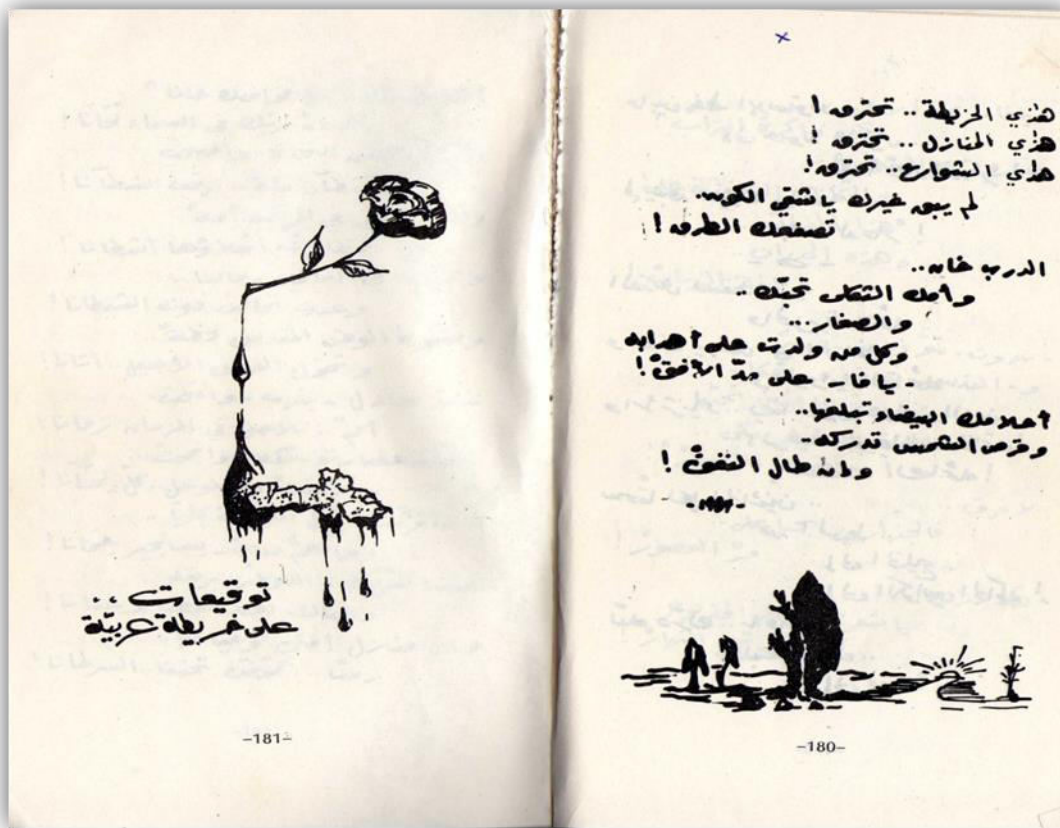 هذي الخريطة .. تحترق !
هذي المنازل .. تحترق !
هذي الشوارع .. تحترق !
لم يبق غيرك يا شقي الكون..
تصفعك الطرق !
الدرب خان..
وأمك الثكلى تحبك..
والصغار...
وكل من ولدت على أهدابه
- يا فارس على مدّ الأفقْ !
أحلامك البيضاء تبلغها..
وقرص الشمس تدركه -
وإن طال النفقْ !
-180-
توقيعات ..
على خريطة عربيّة
-181-